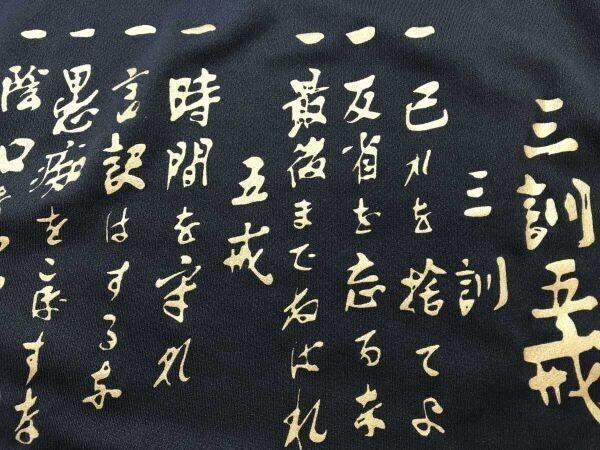 三訓五戒
三訓
一 己れを捨てよ
一 反省を忘るな
一 最後まで頑張れ
五戒
一 時間を守れ
一 言訳はするな
一 愚痴をこぼすな
一 陰口